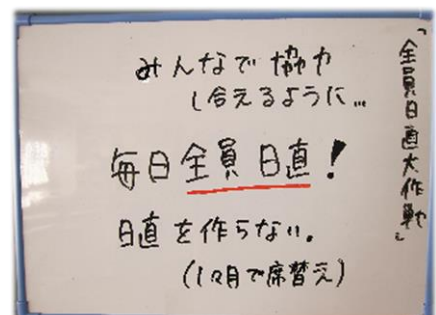 「全員日直大作戦」
みんなで協力
し合えるように…
毎日全員日直!
日直を作らない。
(1ヶ月で席替え)